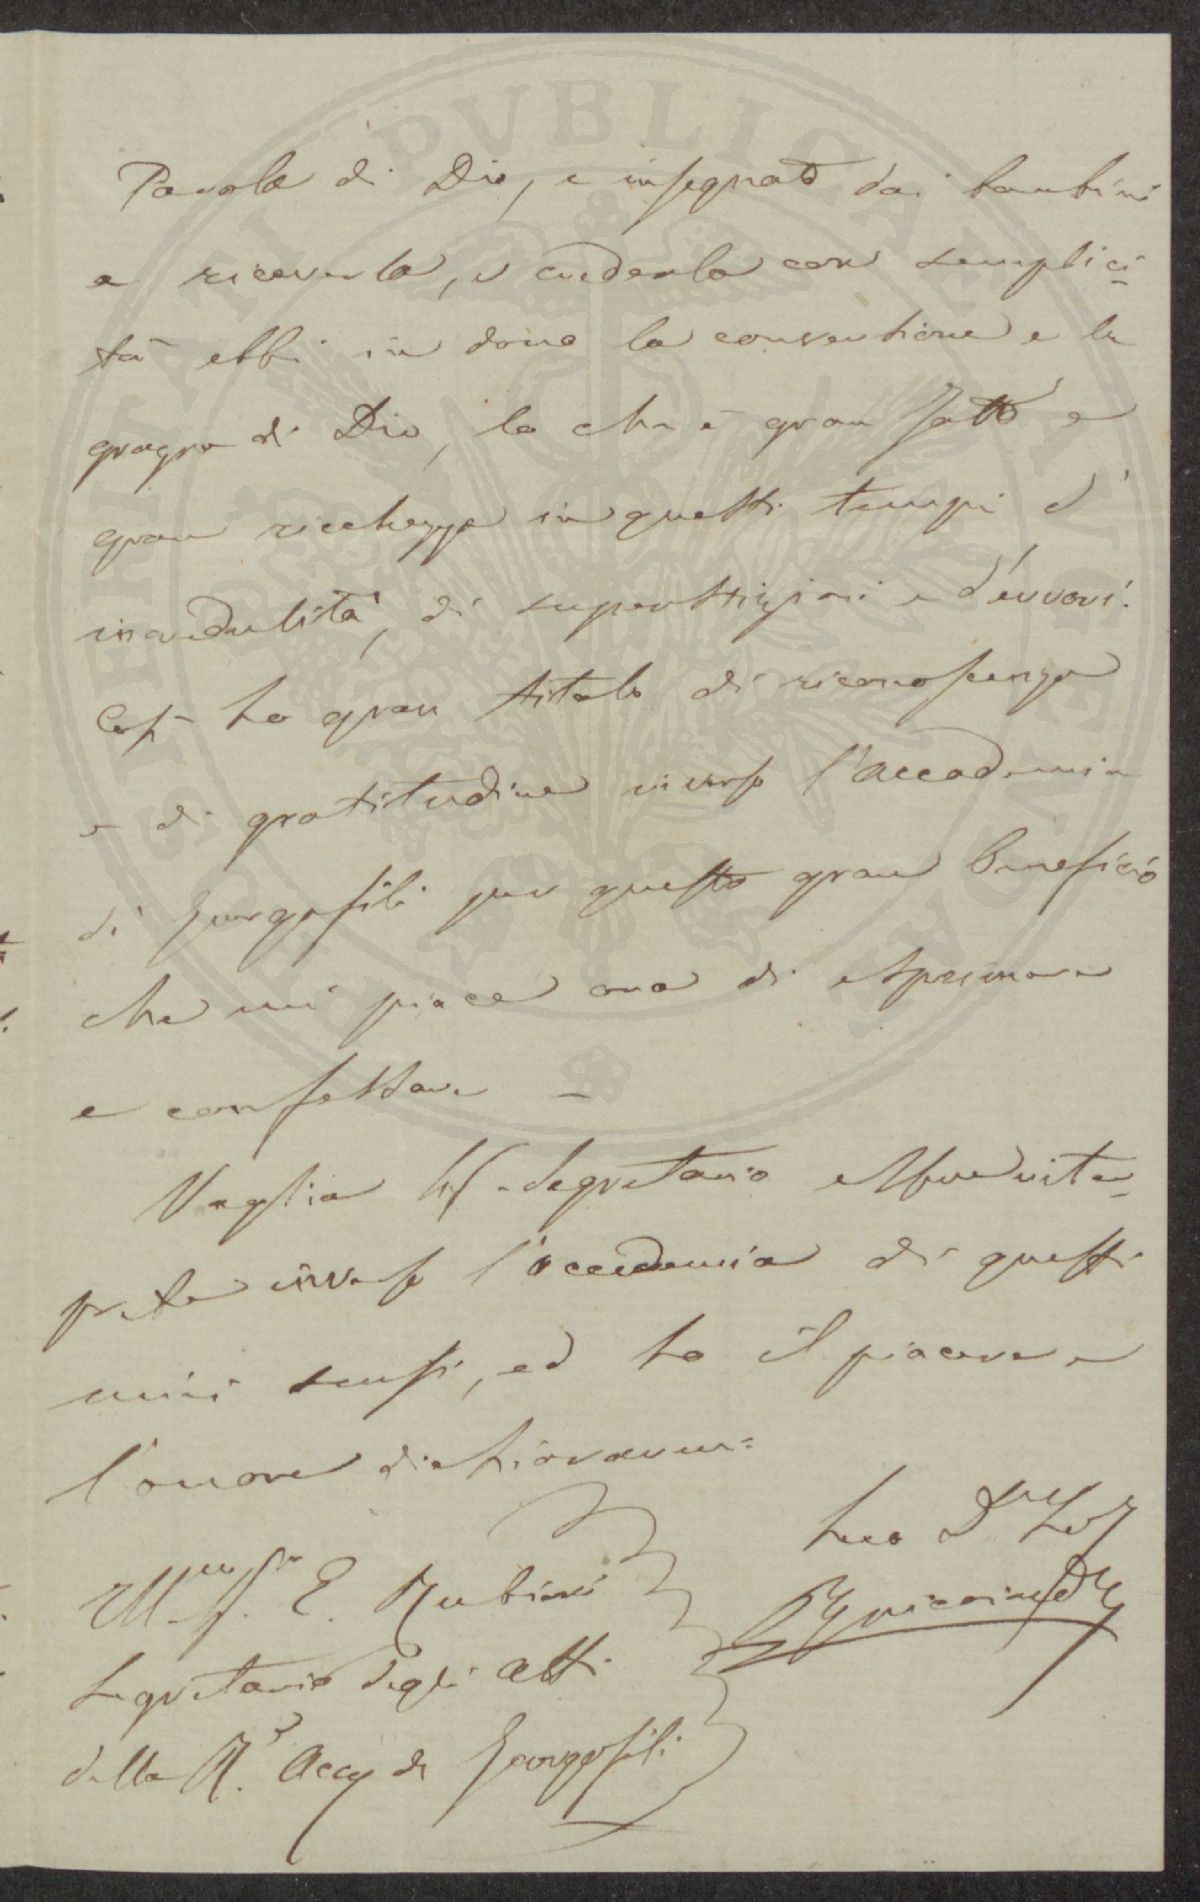 Parola di Dio, e insegnato dai bambini
a riceverla, e crederla con semplici-
tà ebbi in dono la conversione e la
grazia di Dio, lo che è gran fatto e
gran ricchezza in questi tempi d'
incredulità, di superstizioni e d'errori.
Così ho gran titolo di riconoscenza
e di gratitudine inverso l'Accademia
di Georgofili per questo gran beneficio
che mi piace ora di esprimere
e confessare —
Voglia Sig. Segretario esser
inverso l'accademia di questi
miei sensi, ed ho il piacere e
l'onore dichiararmi=
Suo
Ill.mo Sr. E. Rubini
Segretario degli Atti
della R. Acca di Georgofili